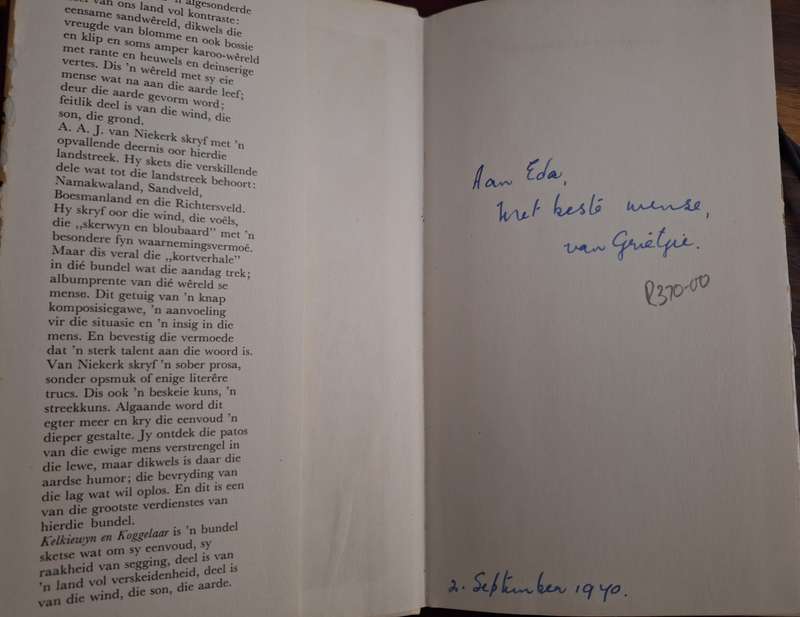 'n algesonderde
van ons land vol kontraste:
eensame sandwêreld, dikwels die
vreugde van blomme en ook bossie
en klip en soms amper karoo-wêreld
met rante en heuwels en deinserige
vertes. Dis 'n wêreld met sy eie
mense wat na aan die aarde leef;
deur die aarde gevorm word;
feitlik deel is van die wind, die
son, die grond.
A. A. J. van Niekerk skryf met 'n
opvallende deernis oor hierdie
landstreek. Hy skets die verskillende
dele wat tot die landstreek behoort:
Namakwaland, Sandveld,
Boesmanland en die Richtersveld.
Hy skryf oor die wind, die voëls,
die „skerwyn en bloubaard” met 'n
besondere fyn waarnemingsvermoë.
Maar dis veral die „kortverhale”
in dié bundel wat die aandag trek;
albumprente van dié wêreld se
mense. Dit getuig van 'n knap
komposisiegawe, 'n aanvoeling
vir die situasie en 'n insig in die
mens. En bevestig die vermoede
dat 'n sterk talent aan die woord is.
Van Niekerk skryf 'n sober prosa,
sonder opsmuk of enige literêre
trucs. Dis ook 'n beskeie kuns, 'n
streekkuns. Algaande word dit
egter meer en kry die eenvoud 'n
dieper gestalte. Jy ontdek die patos
van die ewige mens verstrengel in
die lewe, maar dikwels is daar die
aardse humor; die bevryding van
die lag wat wil oplos. En dit is een
van die grootste verdienstes van
hierdie bundel.
Kelkiewyn en Koggelaar is 'n bundel
sketse wat om sy eenvoud, sy
raakheid van segging, deel is van
'n land vol verskeidenheid, deel is
van die wind, die son, die aarde.
Aan Eda,
Met beste wense,
van Grietjie.
R370-00
2. September 1970.